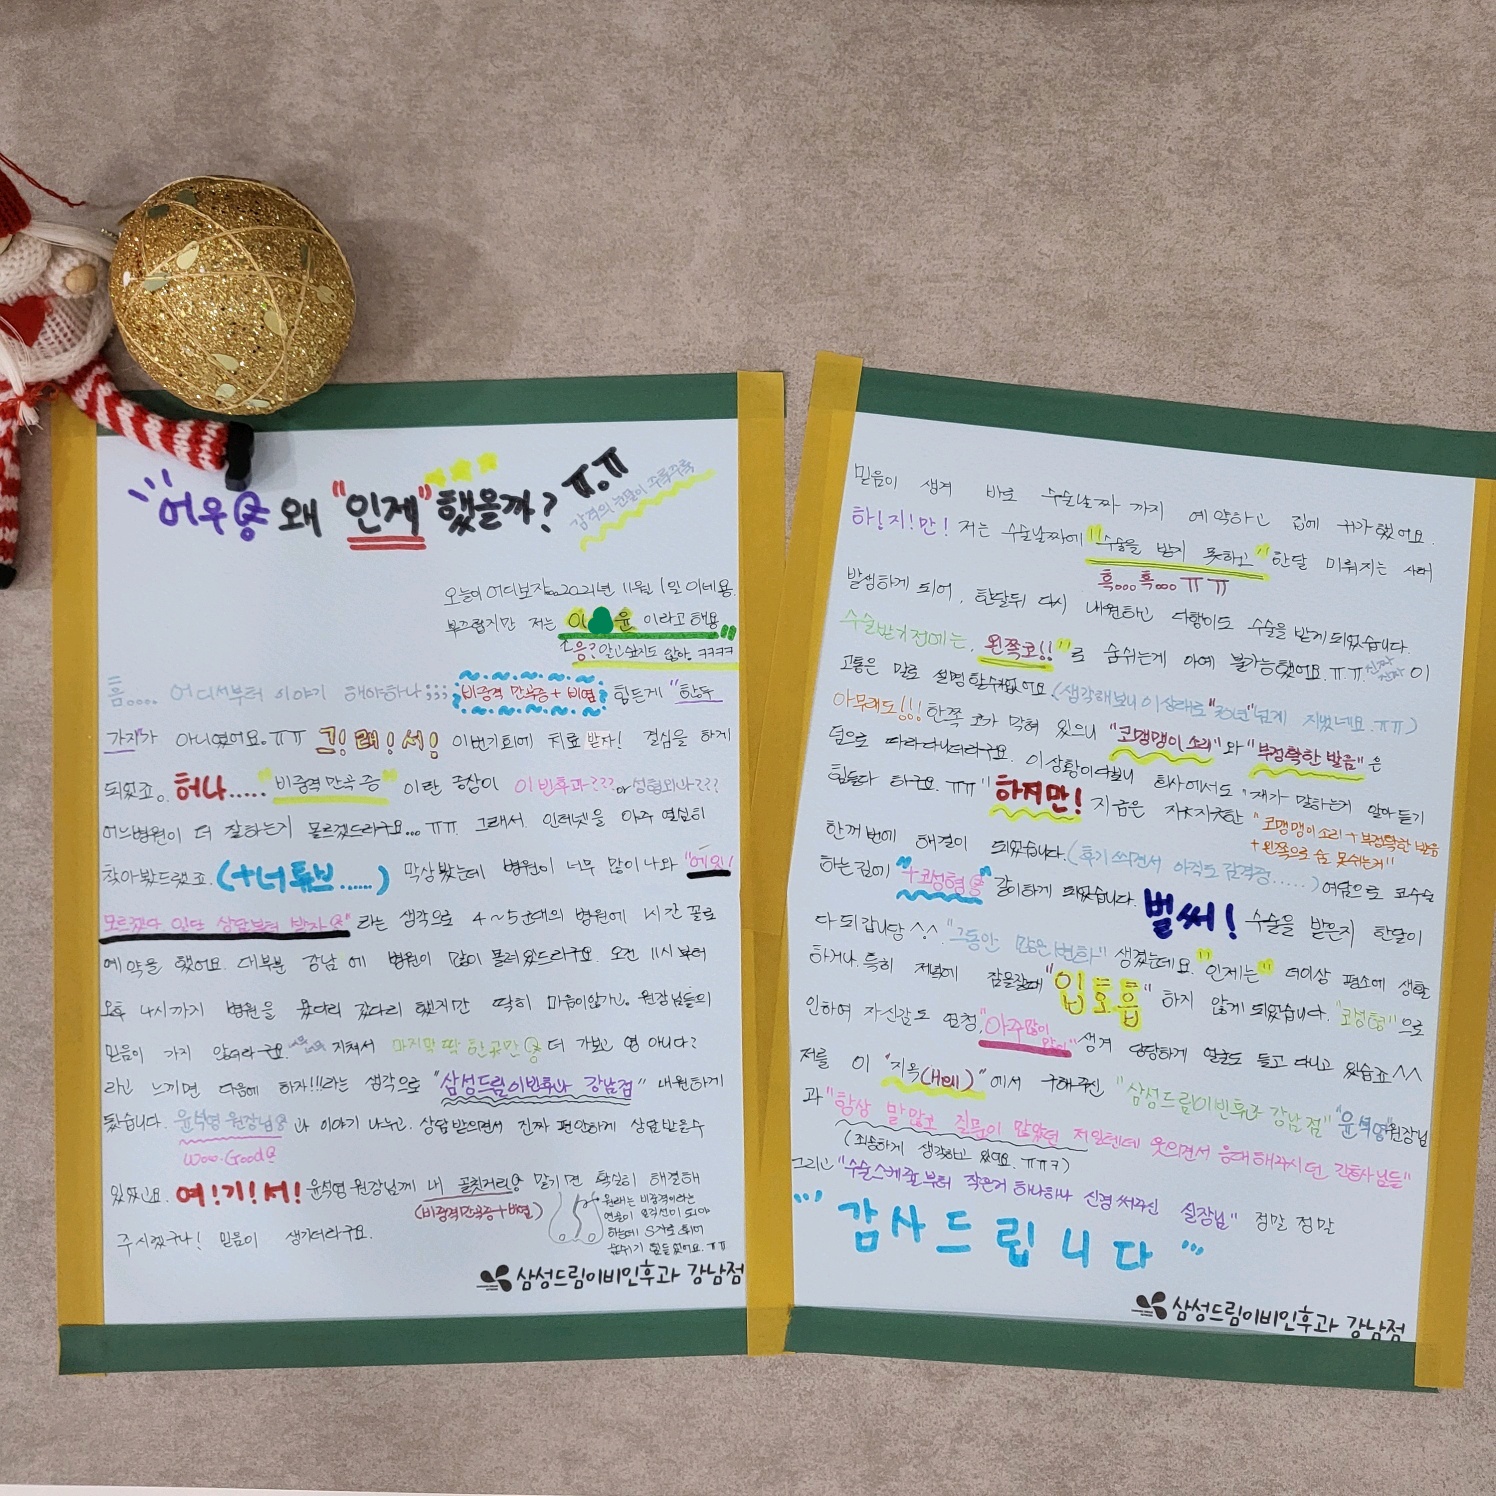 "어우 왜 "인제" 했을까? ㅠ.ㅠ
감격의 눈물이 주륵주륵
오늘이 어디보자...2021년 11월 1일 이네용.
부끄럽지만 저는 이 윤 이라고 해용
응? 알고싶지도 않아. ㅋㅋㅋㅋ
음.... 어디서부터 이야기 해야하나;;; 비중격 만곡증 + 비염 힘든게 "한두
가지"가 아니였어요.ㅠㅠ 그!래!서! 이번기회에 치료 받자! 결심을 하게
되었죠. 허나..... "비중격만곡증" 이란 증상이 이빈후과??? or 성형외과???
어느병원이 더 잘하는지 모르겠드라구요...ㅠㅠ. 그래서. 인터넷을 아주 열심히
찾아봤드랬죠. (+너튜브......) 막상봤는데 병원이 너무 많이 나와 "에잇!
모르겠다 일단 상담부터 받자" 라는 생각으로 4~5군데의 병원에 1시간 꼴로
예약을 했어요. 대부분 강남에 병원이 많이 몰려있드라구요. 오전 11시부터
오후 4시까지 병원을 왔다리 갔다리 했지만 딱히 마음이안가고. 원장님들의
믿음이 가지 않더라구요. 지쳐서 마지막 딱 한곳만 더 가보고 영 아니다?
라고 느끼면 다음에 하자!!!라는 생각으로 "삼성드림이빈후과 강남점" 내원하게
됬습니다. 윤석영 원장님 과 이야기 나누고. 상담받으면서 진짜 편안하게 상담받을수
woo.Good
있었고요. 여!기!서! 윤석영 원장님께 내 골칫거리 맡기면 확실히 해결해
(비중격만곡증+비염)
주시겠구나! 믿음이 생기더라구요.
원래는 비중격이라는
연골이 일직선이 되야
하는데 S자로 휘어
숨쉬기 힘들었어요. ㅠㅠ
삼성드림이비인후과 강남점
믿음이 생겨 바로 수술날짜 까지 예약하고 집에 귀가했어요.
하!지!만! 저는 수술날짜에 "수술을 받지 못하고" 한달 미뤄지는 사태
혹...혹...ㅠㅠ
발생하게 되어. 한달뒤 다시 내원하고 다행이도 수술을 받게되었습니다.
수술받기전에는. 왼쪽코!!"로 숨쉬는게 아예 불가능했어요.ㅠㅠ. 진짜 진짜 이
고통은 말로 설명할수없어요.(생각해보니 이상태로 "30년"넘게 지냈네요.ㅠㅠ)
아무래도!!! 한쪽 코가 막혀 있으니 "코맹맹이소리"와 "부정확한 발음"은
덤으로 따라다니더라구요. 이상황이다보니 회사에서도 "제가 말하는거 알아듣기
힘들다 하구요. ㅠㅠ" 하지만! 지금은 지긋지긋한 "코맹맹이소리+부정확한 발음
+왼쪽으로 숨 못쉬는거"
한꺼번에 해결이 되었습니다.(후기 쓰면서 아직도 감격중.....) 여담으로 코수술
하는김에 "+코성형" 같이하게 되었습니다. 벌써! 수술을 받은지 한달이
다되갑니당 ^^. "그동안 많은변화" 생겼는데요. "인제는" 더이상 평소에 생활
하거나. 특히 저녁에 잠을잘때 "입호흡" 하지 않게 되었습니다. "코성형"으로
인하여 자신감도 엄청 "아주많이 많이" 생겨 당당하게 얼굴도 들고 다니고 있습죠^^
저를 이 "지옥(Hell)"에서 구해주신 "삼성드림이빈후과 강남점" "윤석영"원장님
과 "항상 말많고 질문이 많았던 저일텐데 웃으면서 응대해주시던 간호사님들"
(죄송하게 생각하고 있어요. ㅠㅠㅋ)
그리고 "수술스케줄부터 작은거 하나하나 신경써주신 실장님" 정말 정말
"감사드립니다"
삼성드림이비인후과 강남점